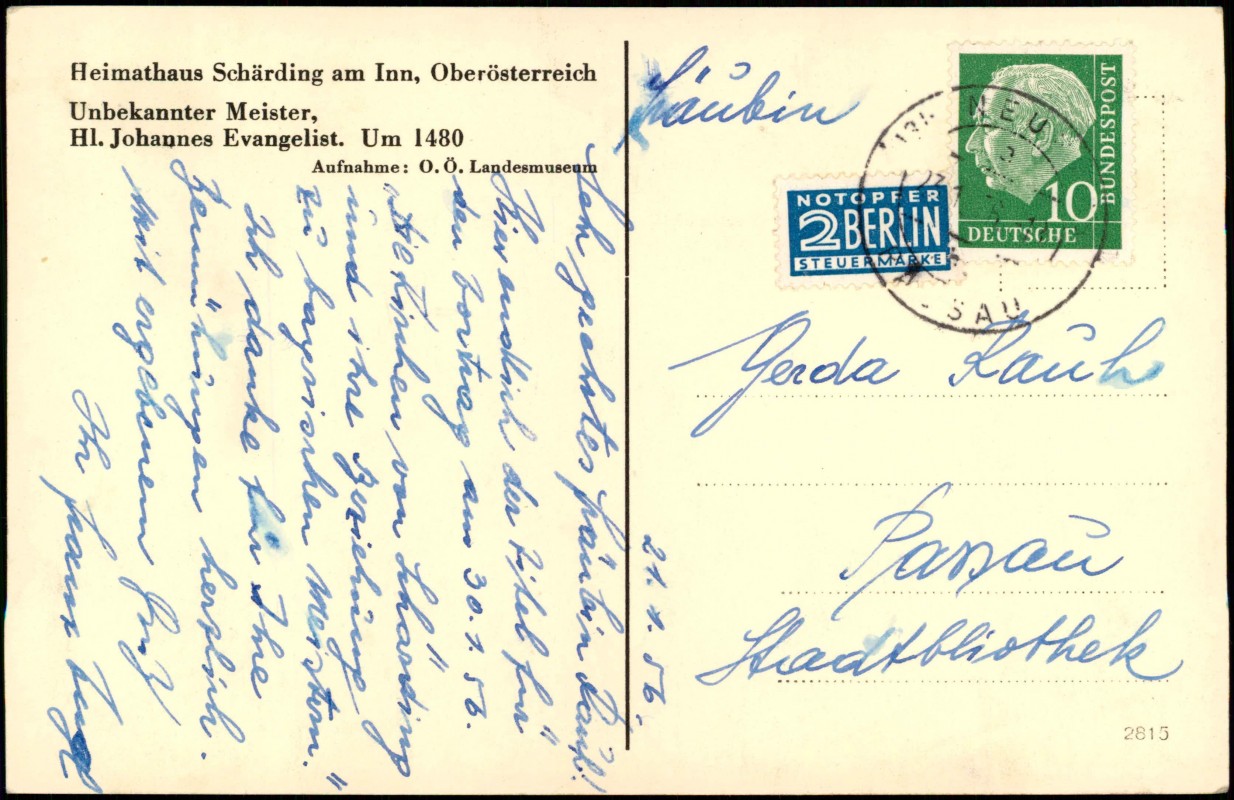 Heimathaus Schärding am Inn, Oberösterreich
Unbekannter Meister,
Hl. Johannes Evangelist. Um 1480
Aufnahme: O. Ö. Landesmuseum
Sehr geehrtes Fräulein Rauh!
Hier endlich der Titel für
den Vortrag am 30.1.56.
"Die Kirchen von Schärding
und ihre Beziehung
zu bayrischen Meistern."
Ich danke für Ihre
Bemühungen herzlich.
Mit ergebenem Gruß
Ihr Franz
21.1.56.
Fräulein
NOTOPFER
2 BERLIN
STEUERMARKE
10
DEUTSCHE
BUNDESPOST
Gerda Rauh
Passau
Stadtbibliothek
2815